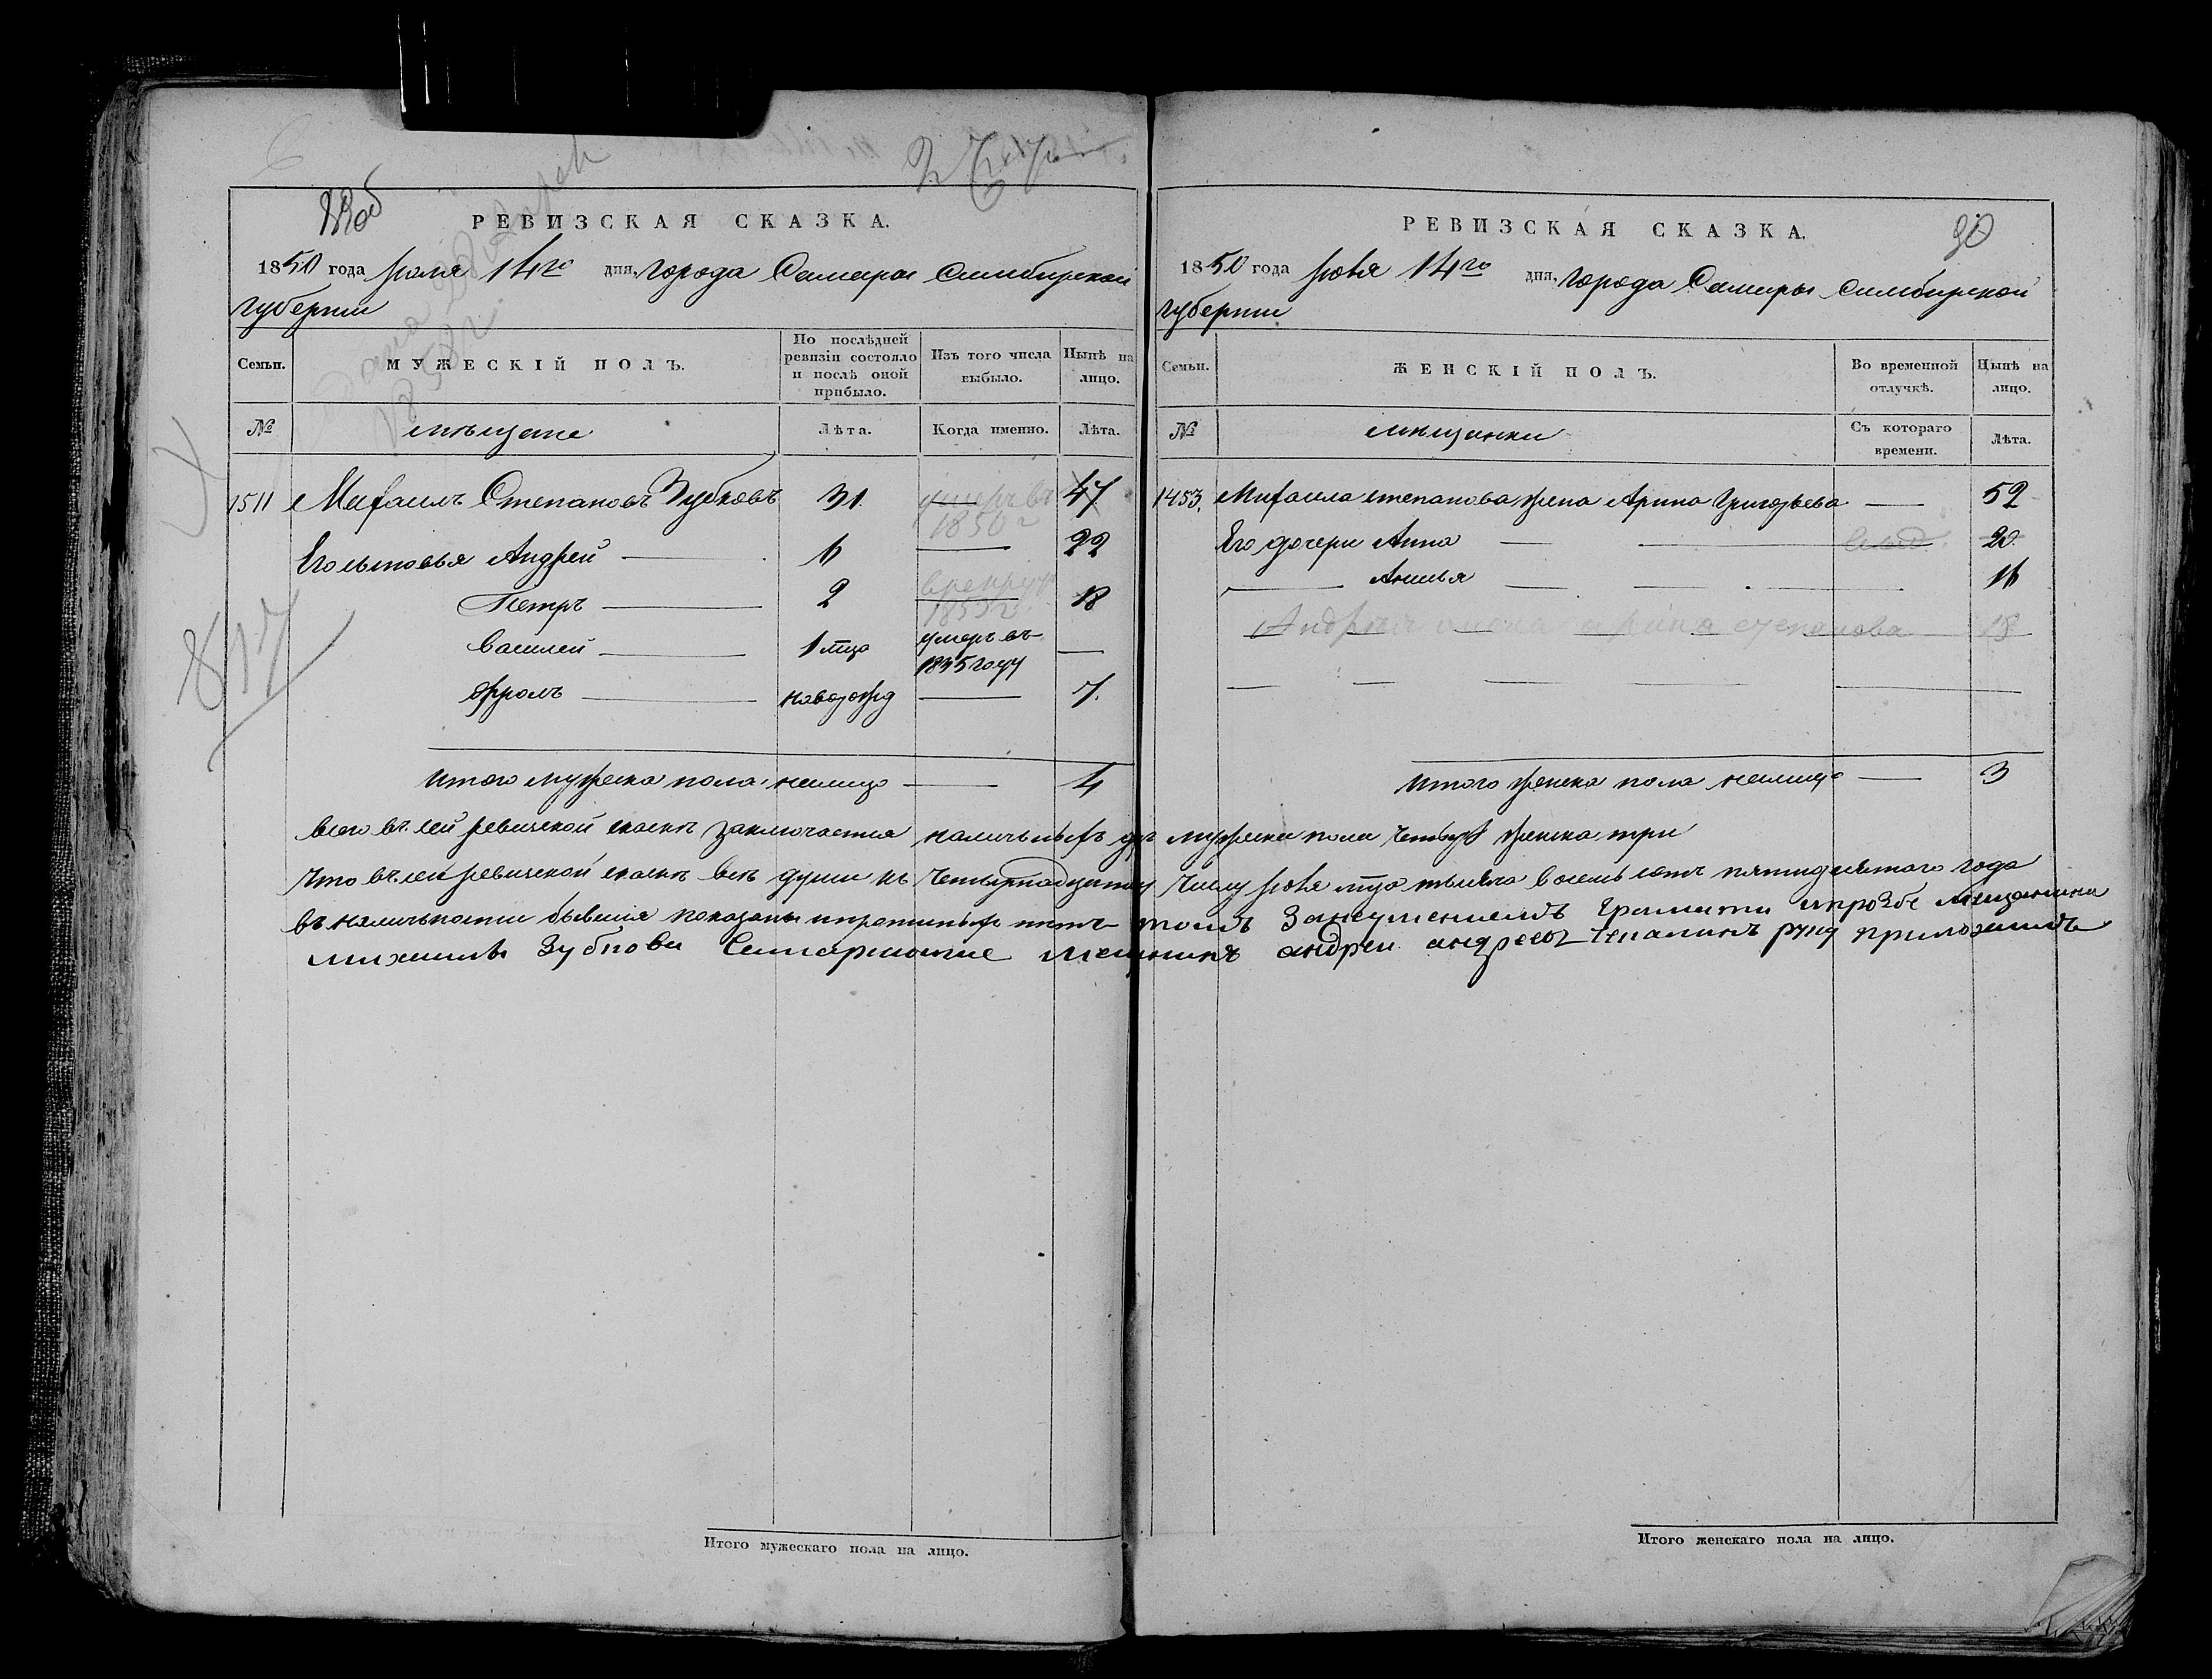 90
РЕВИЗСКАЯ СКАЗКА.
1850 года июля 14го дня, города Самары Симбирской
губернии
Семьи. МУЖЕСКІЙ ПОЛЪ. По послѣдней ревизіи состояло и послѣ оной прибыло. Изъ того числа выбыло. Нынѣ на лицо.
№ мещане Лѣта. Когда именно. Лѣта.
1511 Михаилъ Степановъ Зубковъ 31 умеръ въ 1850 г 47
Его сыновья Андрей 6 22
Петръ 2 в рекруты 1853 г 18
Василей 1 мца умеръ въ 1835 году
Фролъ новорожд 7.
Итого мужеска пола налицо 4
РЕВИЗСКАЯ СКАЗКА.
1850 года июля 14го дня, города Самары Симбирской
губернии
Семьи. ЖЕНСКІЙ ПОЛЪ. Во временной отлучкѣ. Нынѣ на лицо.
№ мещанки Съ котораго времени. Лѣта.
1453. Михаила степанова жена Арина Григорьева 52
Его дочери Анна 20.
16
Андрея жена арина степанова 18
Итого женска пола налицо 3
всего въ сей ревиской скаскѣ заключается наличныхъ душъ мужеска пола четыре женска три
Что въ сей ревиской скаскѣ всѣ души къ четырнадцатому числу июля мца тысяча восемь сотъ пятидесятого года
въ наличности бывшия показаны
михаила Зубкова Самарские мещанинъ андреи андреевъ руку приложилъ
Итого мужескаго пола на лицо.
Итого женскаго пола на лицо.
817